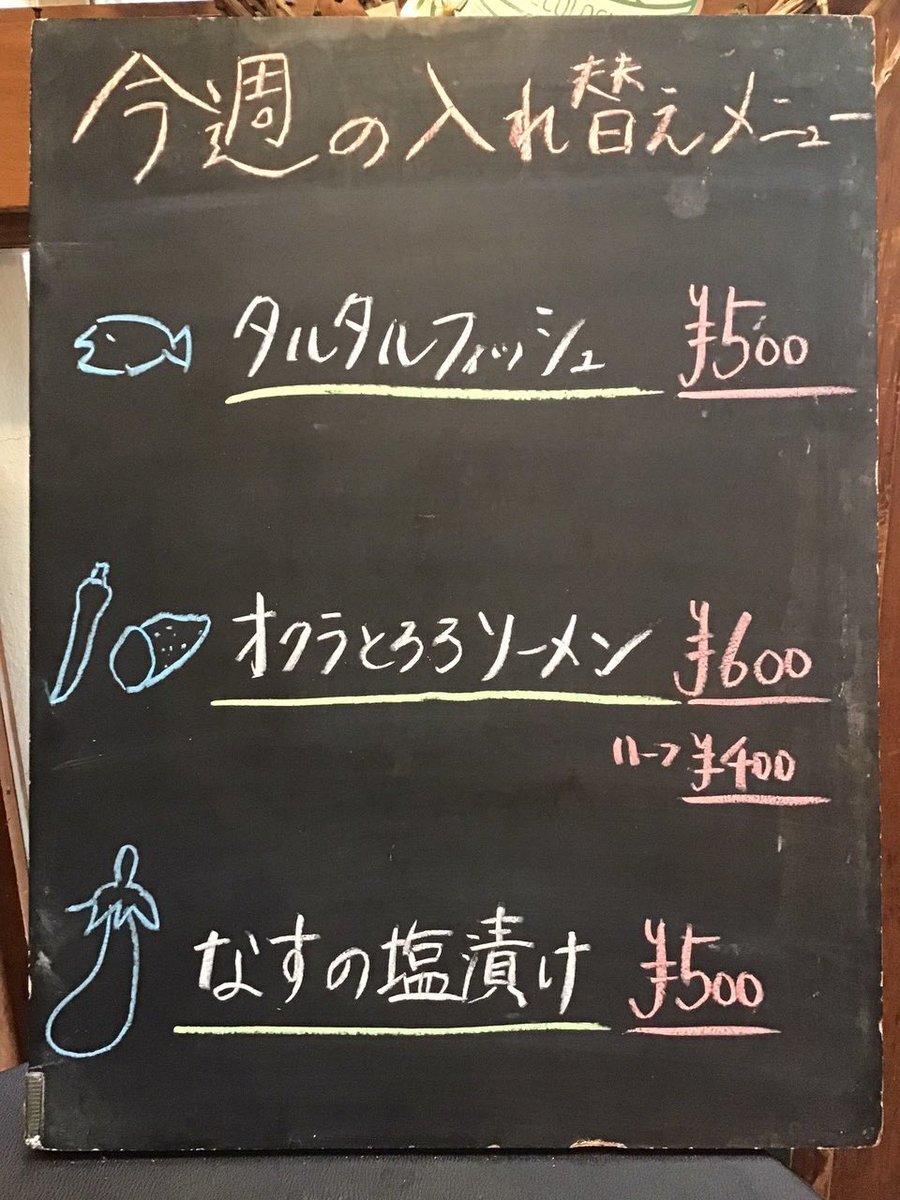 今週の入れ替えメニュー
タルタルフィッシュ ¥500
オクラとろろソーメン ¥600
ハーフ ¥400
なすの塩漬け ¥500